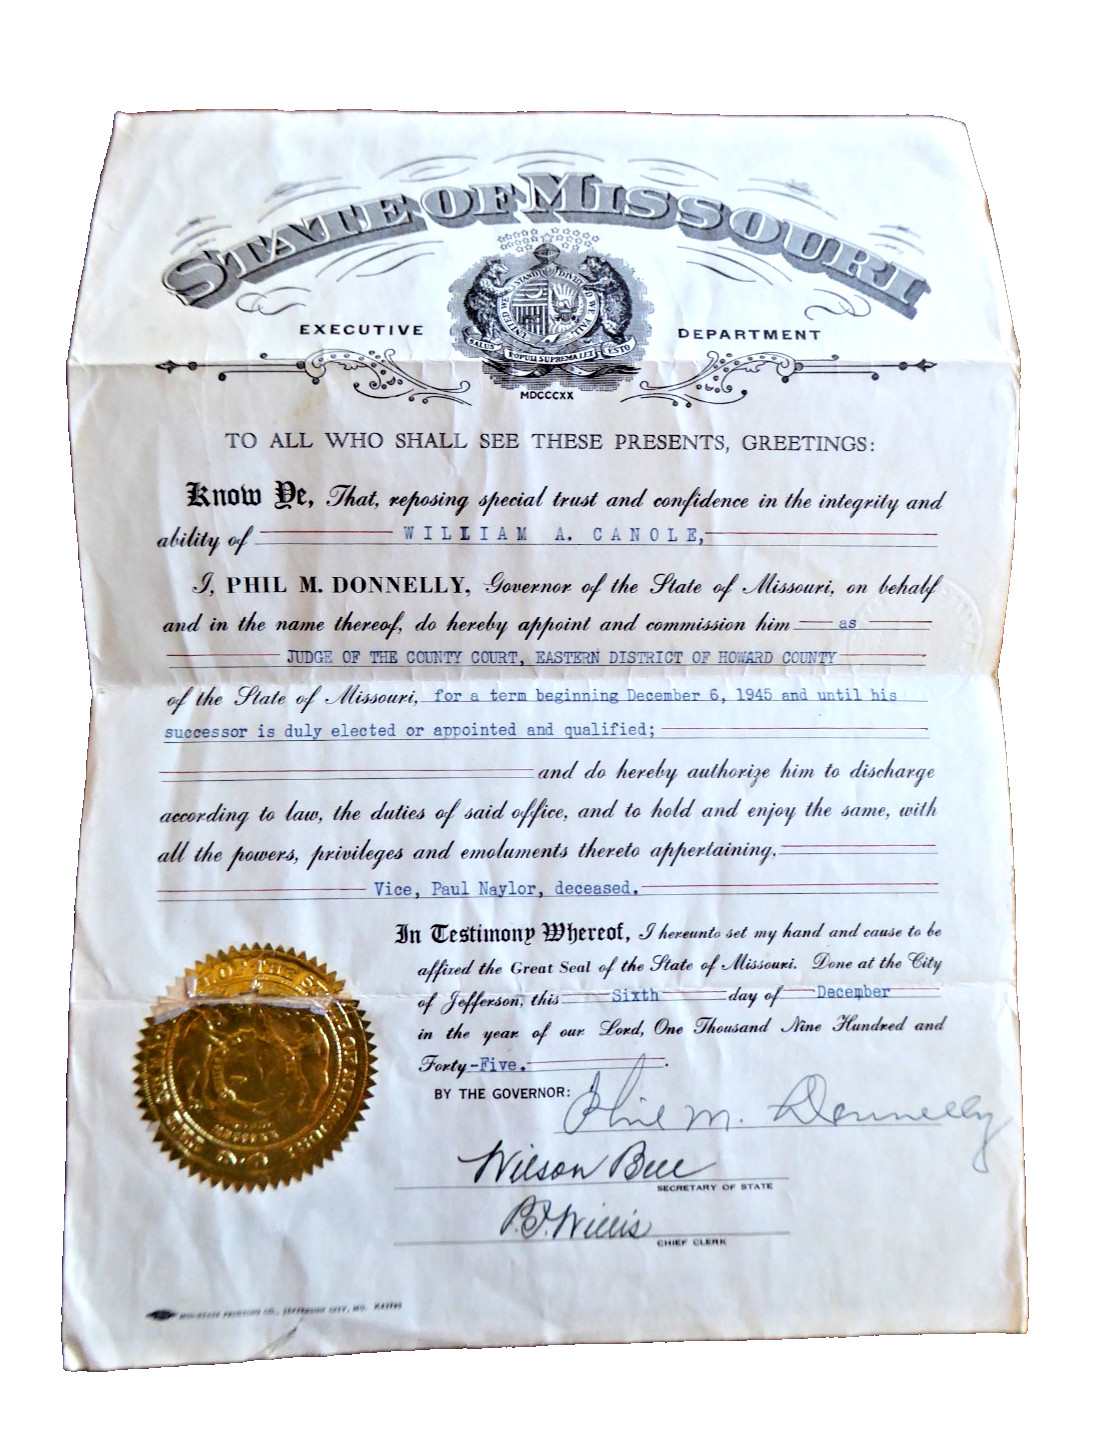 STATE OF MISSOURI
UNITED WE STAND DIVIDED WE FALL
EXECUTIVE DEPARTMENT
SALUS POPULI SUPREMA LEX ESTO
MDCCCXX
TO ALL WHO SHALL SEE THESE PRESENTS, GREETINGS:
Know Ye, That, reposing special trust and confidence in the integrity and
ability of WILLIAM A. CANOLE,
I, PHIL M. DONNELLY, Governor of the State of Missouri, on behalf
and in the name thereof, do hereby appoint and commission him as
JUDGE OF THE COUNTY COURT, EASTERN DISTRICT OF HOWARD COUNTY
of the State of Missouri, for a term beginning December 6, 1945 and until his
successor is duly elected or appointed and qualified;
and do hereby authorize him to discharge
according to law, the duties of said office, and to hold and enjoy the same, with
all the powers, privileges and emoluments thereto appertaining,
Vice, Paul Naylor, deceased.
In Testimony Whereof, I hereunto set my hand and cause to be
affixed the Great Seal of the State of Missouri. Done at the City
of Jefferson, this Sixth day of December
in the year of our Lord, One Thousand Nine Hundred and
Forty-Five.
BY THE GOVERNOR: Phil M. Donnelly
Wilson Bell
SECRETARY OF STATE
B.I. Willis
CHIEF CLERK
PRINTING CO., JEFFERSON CITY, MO.